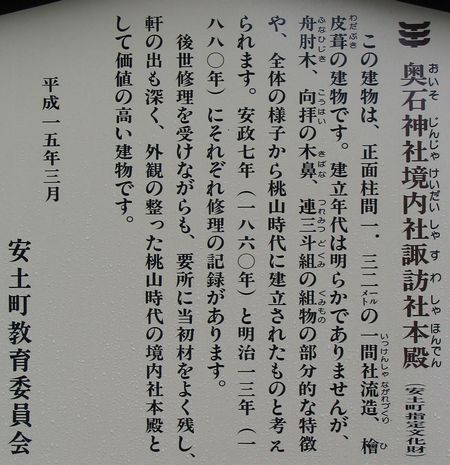 奥石神社境内社諏訪社本殿（安土町指定文化財）
この建物は、正面柱間一．三二メートルの一間社流造、檜
皮葺の建物です。建立年代は明らかでありませんが、
舟肘木、向拝の木鼻、連三斗組の組物の部分的な特徴
や、全体の様子から桃山時代に建立されたものと考え
られます。安政七年（一八六〇年）と明治一三年（一
八八〇年）にそれぞれ修理の記録があります。
後世修理を受けながらも、要所に当初材をよく残し、
軒の出も深く、外観の整った桃山時代の境内社本殿と
して価値の高い建物です。
平成一五年三月
安土町教育委員会